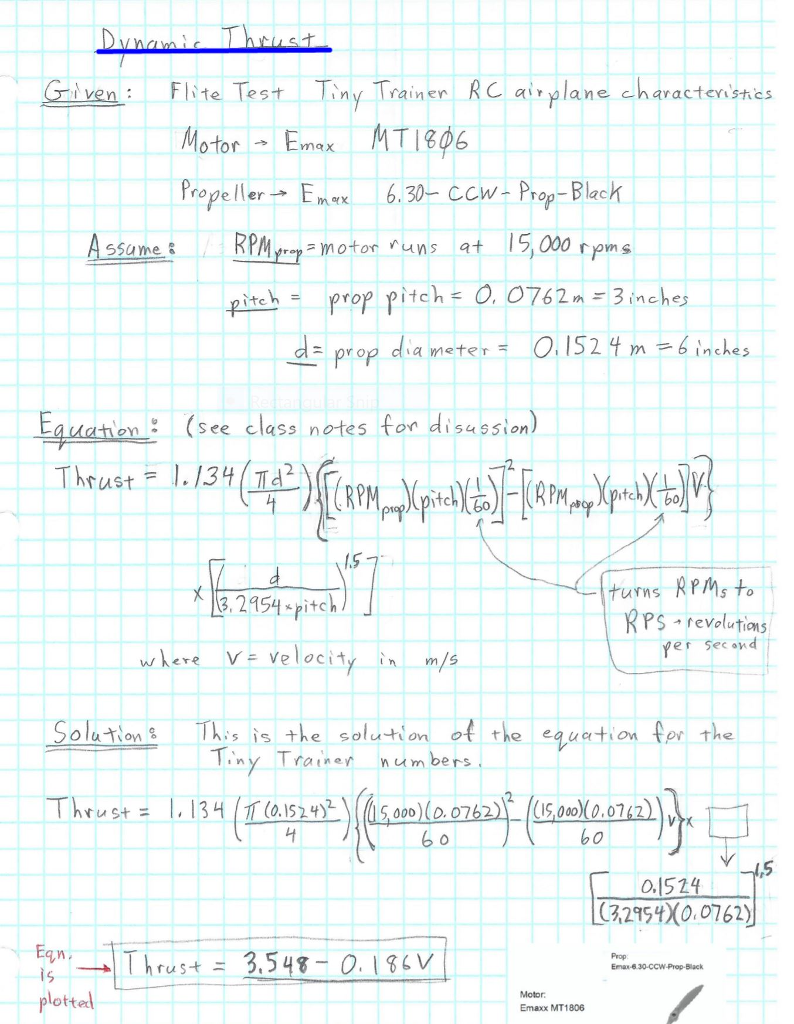 Dynamic Thrust
Given: Flite Test Tiny Trainer RC airplane characteristics
Motor → Emax MT1806
Propeller → Emax 6.30-CCW-Prop-Black
Assume: RPM prop = motor runs at 15,000 rpms
pitch = prop pitch = 0.0762m = 3 inches
d = prop diameter = 0.1524 m = 6 inches
Rectangular Snip
Equation: (see class notes for disussion)
Thrust = 1.134 (πd²/4) {[(RPM prop)(pitch)(1/60)]² - [(RPM prop)(pitch)(1/60)]V}
× [(d / 3.2954 × pitch)^1.5]
turns RPMs to
RPS → revolutions
per second
where V = velocity in m/s
Solution: This is the solution of the equation for the
Tiny Trainer numbers.
Thrust = 1.134 (π(0.1524)²/4) {((15,000)(0.0762)/60)² - ((15,000)(0.0762)/60) V} ×
[0.1524 / (3.2954)(0.0762)]^1.5
Eqn.
is
plotted
→ Thrust = 3.548 - 0.186V
Prop:
Emax-6.30-CCW-Prop-Black
Motor:
Emaxx MT1806